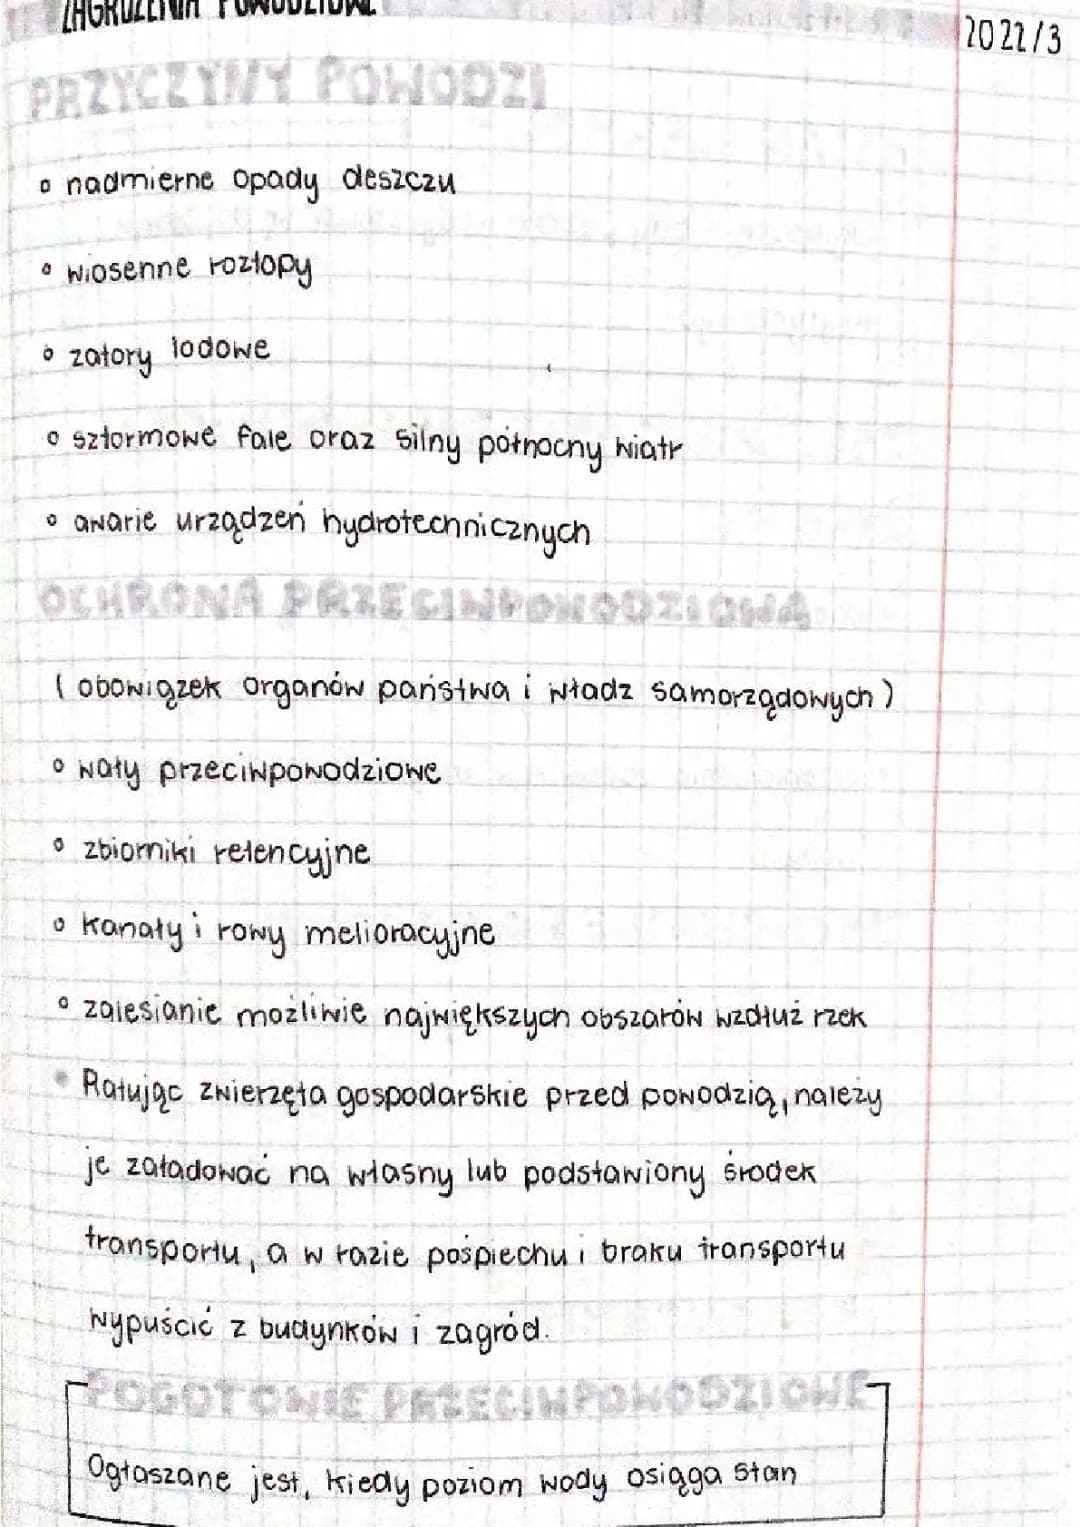 ZAGROŻENIA POWODZIOWE
2022/3
PRZYCZYNY POWODZI
nadmierne opady deszczu
wiosenne roztopy
zatory lodowe
sztormowe fale oraz silny północny wiatr
awarie urządzeń hydrotechnicznych
OCHRONA PRZECIWPOWODZIOWA
(obowiązek organów państwa i władz samorządowych)
wały przeciwpowodziowe
zbiorniki retencyjne
kanały i rowy melioracyjne
zalesianie możliwie największych obszarów wzdłuż rzek
Ratując zwierzęta gospodarskie przed powodzią, należy
je załadować na własny lub podstawiony środek
transportu, a w razie pośpiechu i braku transportu
wypuścić z budynków i zagród.
POGOTOWIE PRZECIWPOWODZIOWE
Ogłaszane jest, kiedy poziom wody osiąga stan